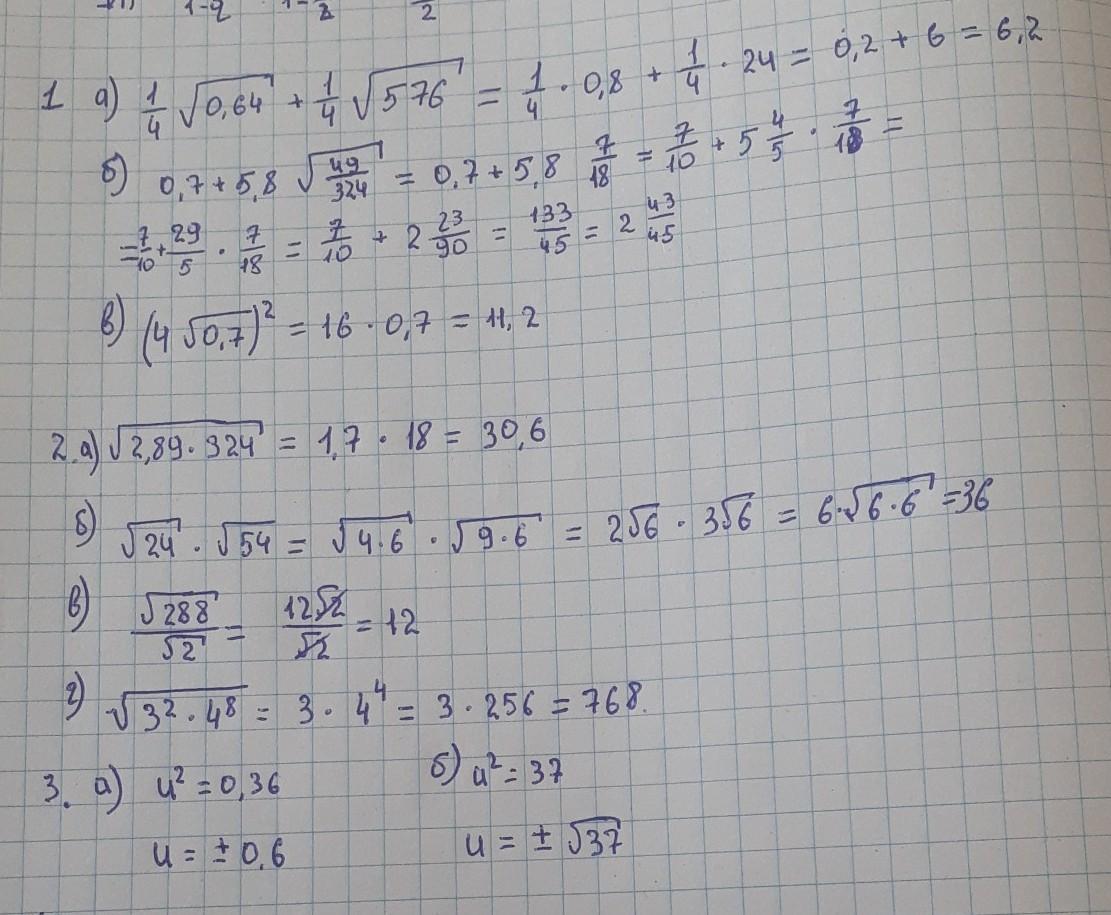 1 а) 1/4 √0,64 + 1/4 √576 = 1/4 · 0,8 + 1/4 · 24 = 0,2 + 6 = 6,2
б) 0,7 + 5,8 √49/324 = 0,7 + 5,8 7/18 = 7/10 + 5 4/5 · 7/18 =
= 7/10 + 29/5 · 7/18 = 7/10 + 2 23/90 = 133/45 = 2 43/45
в) (4√0,7)² = 16 · 0,7 = 11,2
2. а) √2,89 · 324 = 1,7 · 18 = 30,6
б) √24 · √54 = √4·6 · √9·6 = 2√6 · 3√6 = 6·√6·6 = 36
в) √288/√2 = 12√2/√2 = 12
г) √3² · 4⁸ = 3 · 4⁴ = 3 · 256 = 768.
3. а) u² = 0,36 б) u² = 37
u = ± 0,6 u = ± √37